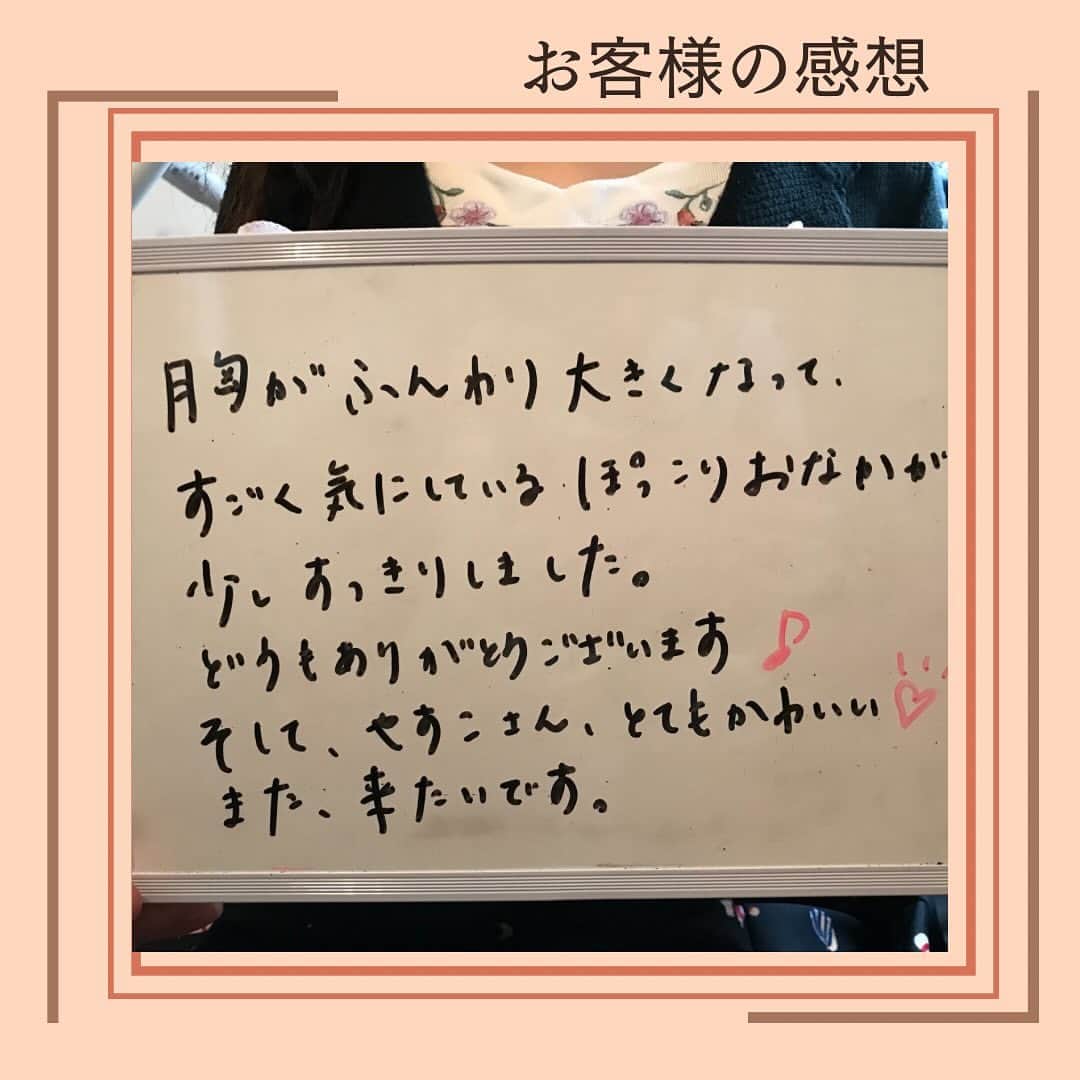 お客様の感想
胸がふんわり大きくなって、
すごく気にしているぽっこりおなかが
少しすっきりしました。
どうもありがとうございます♪
そして、やすこさん、とてもかわいい♡
また、来たいです。